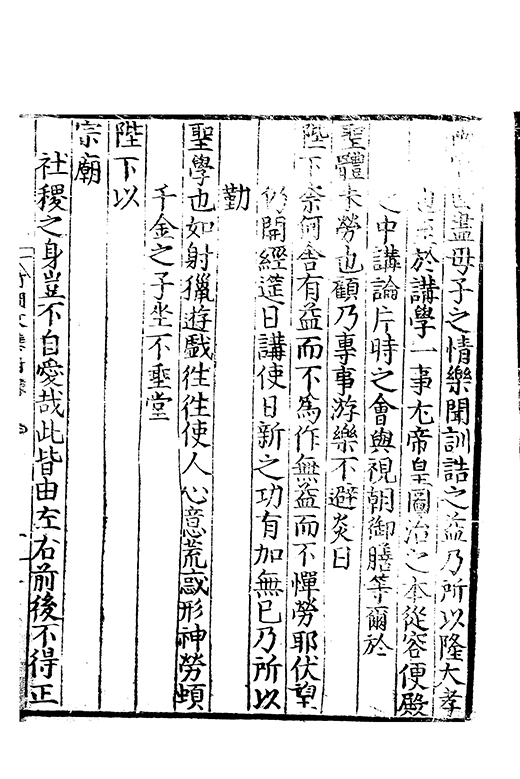 盡母子之情樂聞訓誥之益乃所以隆大孝
於講學一事尤帝皇圖治之本從容便殿
之中講論片時之會與視朝御膳等爾於
聖體未勞也顧乃專事游樂不避炎日
陛下奈何舍有益而不為作無益而不憚勞耶伏望
仍開經筵日講使日新之功有加無已乃所以
勤
聖學也如射獵遊戲往往使人心意荒惑形神勞頓
千金之子坐不垂堂
陛下以
宗廟
社稷之身豈不自愛哉此皆由左右前後不得正